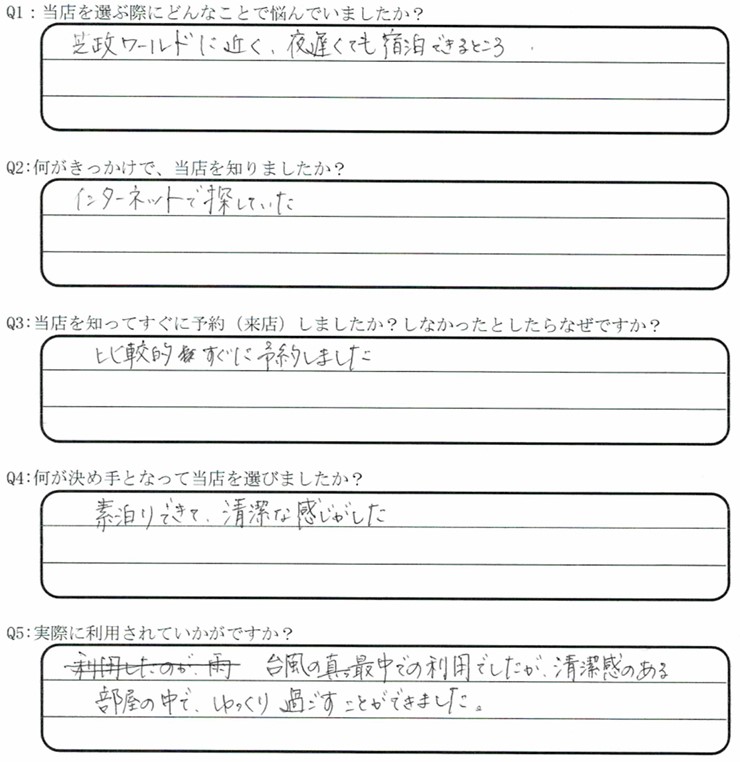 Q1：当店を選ぶ際にどんなことで悩んでいましたか？
芝政ワールドに近く、夜遅くても宿泊できるところ
Q2：何がきっかけで、当店を知りましたか？
インターネットで探していた
Q3：当店を知ってすぐに予約（来店）しましたか？しなかったとしたらなぜですか？
比較的すぐに予約しました
Q4：何が決め手となって当店を選びましたか？
素泊りできて、清潔な感じがした
Q5：実際に利用されていかがですか？
利用したのが、雨　台風の真っ最中での利用でしたが、清潔感のある
部屋の中で、ゆっくり過ごすことができました。